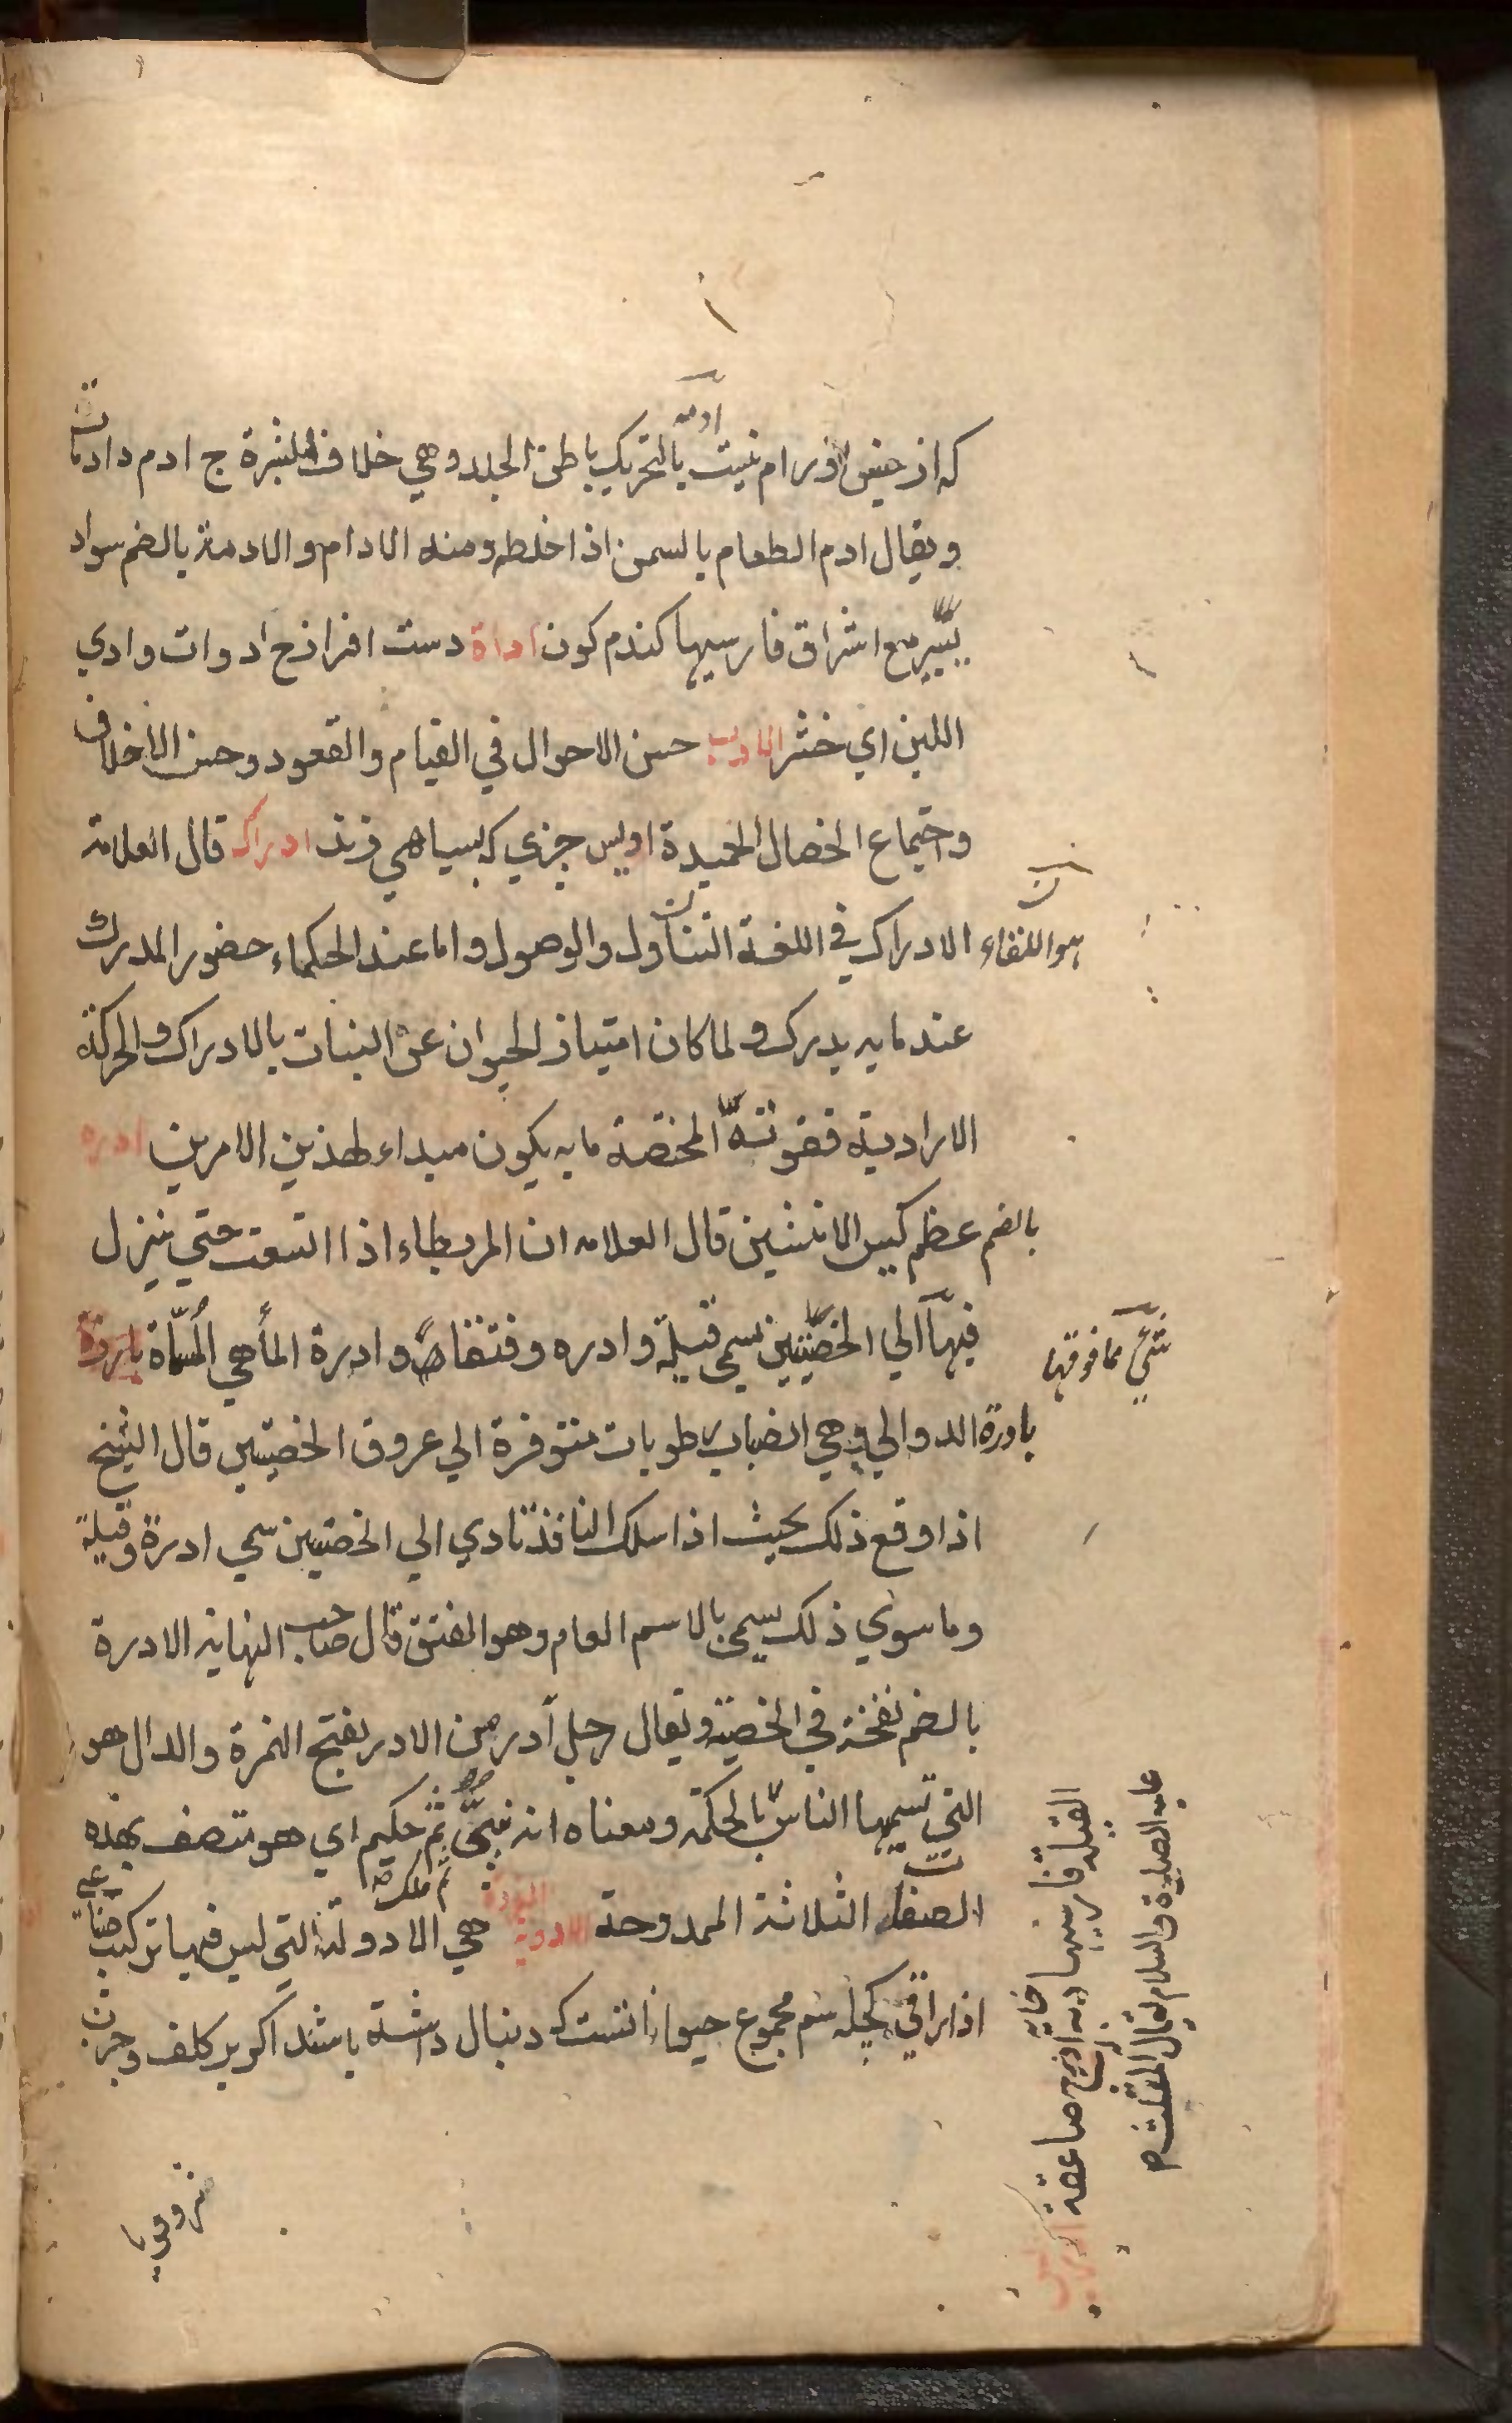 که از جنس اورام نیست ادمه بالتحریک باطن الجلد وهي خلاف البشرة ج ادم دادمات
ويقال ادم الطعام بالسمن اذا خلطه ومنه الادام والادمة بالضم سواد
يسير مع اشراق فارسيها كندم كون اداة دست افراز ج ادوات وادي
اللبن اي خثر الادب حسن الاحوال في القيام والقعود وحسن الاخلاق
واجتماع الخصال الحميدة ادیس چیزي که بسیاهي زند ادراك قال العلامة
هو اللقاء الادراك في اللغة التناول والوصول واما عند الحكماء حضور المدرك
عند ما به يدرك ولما كان امتياز الحيوان عن النبات بالادراك والحركة
الارادية فقوته المختصة ما به يكون مبداء لهذين الامرين ادره
بالضم عظم كيس الانثيين قال العلامه ان المريطاء اذا اتسعت حتي ينزل
فيها الي الخصيتين يسمي قيلة وادره وفتقا وادرة الماء هي المسماة
شيئ مما فوقها
بادرة الدوالي وهي انصباب رطوبات متوفرة الي عروق الخصيتين قال الشيخ
اذا وقع ذلك بحيث اذا سلك النافذ تادي الي الخصيتين سمي ادرة وقيلة
وما سوي ذلك يسمي بالاسم العام وهو الفتق قال صاحب النهايه الادرة
بالضم نفخة في الخصية ويقال رجل آدر من الادر بفتح الهمزة والدال هو
التي تسميها الناس بالحكمة ومعناه انه ثم حكيم اي هو متصف بهذه
الصفات الثلاثة الممدوحة الادوية المفردة هي الادوية التي ليس فيها تركيب
اذاراقي سم مجموع حيوانانست که دنبال داشته باشد اكر بر كلف وجرب
القيلة فارسيها دبه خايه صاعقة
عليه الصلوة والسلام يقال